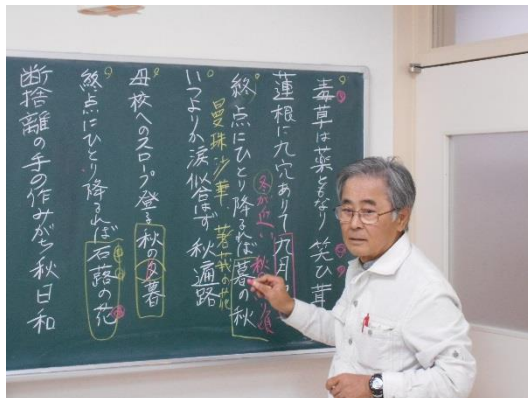 毒草は薬ともなり 笑ひ茸
蓮根に九穴ありて九月
冬が近い
終点にひとり降るれば暮の秋
曼珠沙華
いつよりか涙似合はず 秋遍路
母校へのスロープ登る 秋の夕暮
終点にひとり降るれば 石蕗の花
断捨離の手の作みがち 秋日和